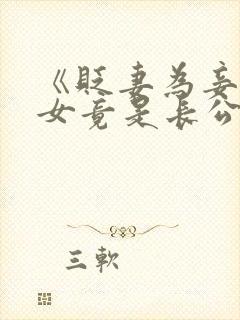 《贬妻為妾
女竟是长公
三軟